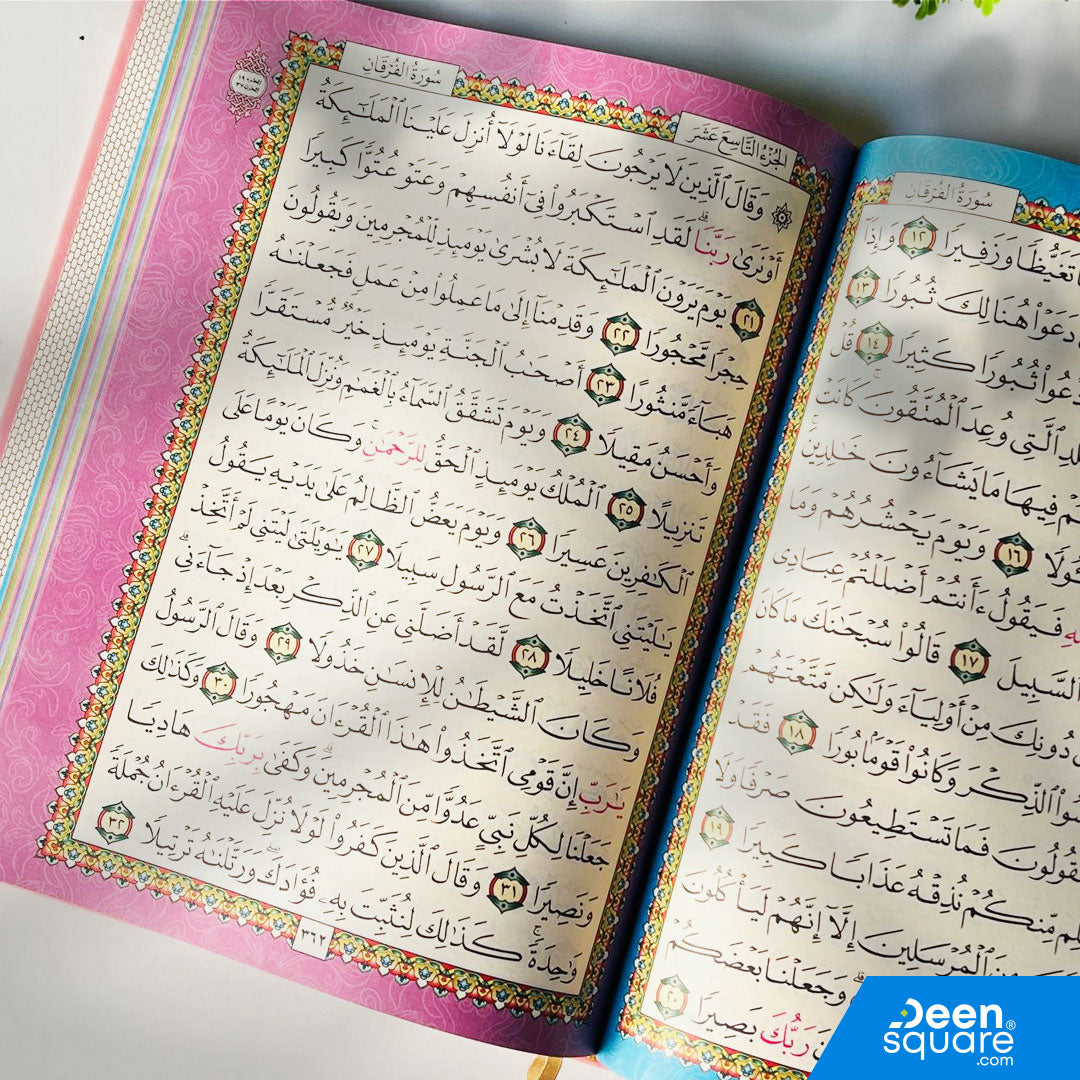 سُورَةُ الفُرْقَانِ
تَغَيُّظًا وَزَفِيرًا ١٢ وَإِذَا
دَعَوْا۟ هُنَالِكَ ثُبُورًا ١٣
ثُبُورًا كَثِيرًا ١٤ قُلْ
ٱلَّتِى وُعِدَ ٱلْمُتَّقُونَ كَانَتْ
فِيهَا مَا يَشَآءُونَ خَٰلِدِينَ
١٦ وَيَوْمَ يَحْشُرُهُمْ وَمَا
فَيَقُولُ ءَأَنتُمْ أَضْلَلْتُمْ عِبَادِى
ٱلسَّبِيلَ ١٧ قَالُوا۟ سُبْحَٰنَكَ مَا كَانَ
دُونِكَ مِنْ أَوْلِيَآءَ وَلَٰكِن مَّتَّعْتَهُمْ
ٱلذِّكْرَ وَكَانُوا۟ قَوْمًۢا بُورًا ١٨ فَقَدْ
فَمَا تَسْتَطِيعُونَ صَرْفًا وَلَا
مِّنكُمْ نُذِقْهُ عَذَابًا كَبِيرًا ١٩
ٱلْمُرْسَلِينَ إِلَّآ إِنَّهُمْ لَيَأْكُلُونَ
وَجَعَلْنَا بَعْضَكُمْ
رَبُّكَ بَصِيرًا ٢٠
الجُزْءُ التَّاسِعَ عَشَرَ
سُورَةُ الفُرْقَانِ
الجزء ١٩
الحزب ٣٧
۞ وَقَالَ ٱلَّذِينَ لَا يَرْجُونَ لِقَآءَنَا لَوْلَآ أُنزِلَ عَلَيْنَا ٱلْمَلَٰٓئِكَةُ
أَوْ نَرَىٰ رَبَّنَا ۗ لَقَدِ ٱسْتَكْبَرُوا۟ فِىٓ أَنفُسِهِمْ وَعَتَوْ عُتُوًّا كَبِيرًا
٢١ يَوْمَ يَرَوْنَ ٱلْمَلَٰٓئِكَةَ لَا بُشْرَىٰ يَوْمَئِذٍ لِّلْمُجْرِمِينَ وَيَقُولُونَ
حِجْرًا مَّحْجُورًا ٢٢ وَقَدِمْنَآ إِلَىٰ مَا عَمِلُوا۟ مِنْ عَمَلٍ فَجَعَلْنَٰهُ
هَبَآءً مَّنثُورًا ٢٣ أَصْحَٰبُ ٱلْجَنَّةِ يَوْمَئِذٍ خَيْرٌ مُّسْتَقَرًّا
وَأَحْسَنُ مَقِيلًا ٢٤ وَيَوْمَ تَشَقَّقُ ٱلسَّمَآءُ بِٱلْغَمَٰمِ وَنُزِّلَ ٱلْمَلَٰٓئِكَةُ
تَنزِيلًا ٢٥ ٱلْمُلْكُ يَوْمَئِذٍ ٱلْحَقُّ لِلرَّحْمَٰنِ ۚ وَكَانَ يَوْمًا عَلَى
ٱلْكَٰفِرِينَ عَسِيرًا ٢٦ وَيَوْمَ يَعَضُّ ٱلظَّالِمُ عَلَىٰ يَدَيْهِ يَقُولُ
يَٰلَيْتَنِى ٱتَّخَذْتُ مَعَ ٱلرَّسُولِ سَبِيلًا ٢٧ يَٰوَيْلَتَىٰ لَيْتَنِى لَمْ أَتَّخِذْ
فُلَانًا خَلِيلًا ٢٨ لَّقَدْ أَضَلَّنِى عَنِ ٱلذِّكْرِ بَعْدَ إِذْ جَآءَنِى ۗ
وَكَانَ ٱلشَّيْطَٰنُ لِلْإِنسَٰنِ خَذُولًا ٢٩ وَقَالَ ٱلرَّسُولُ
يَٰرَبِّ إِنَّ قَوْمِى ٱتَّخَذُوا۟ هَٰذَا ٱلْقُرْءَانَ مَهْجُورًا ٣٠ وَكَذَٰلِكَ
جَعَلْنَا لِكُلِّ نَبِىٍّ عَدُوًّا مِّنَ ٱلْمُجْرِمِينَ ۗ وَكَفَىٰ بِرَبِّكَ هَادِيًا
وَنَصِيرًا ٣١ وَقَالَ ٱلَّذِينَ كَفَرُوا۟ لَوْلَا نُزِّلَ عَلَيْهِ ٱلْقُرْءَانُ جُمْلَةً
وَٰحِدَةً ۚ كَذَٰلِكَ لِنُثَبِّتَ بِهِۦ فُؤَادَكَ ۖ وَرَتَّلْنَٰهُ تَرْتِيلًا ٣٢
٣٦٢
Deen
square®
.com